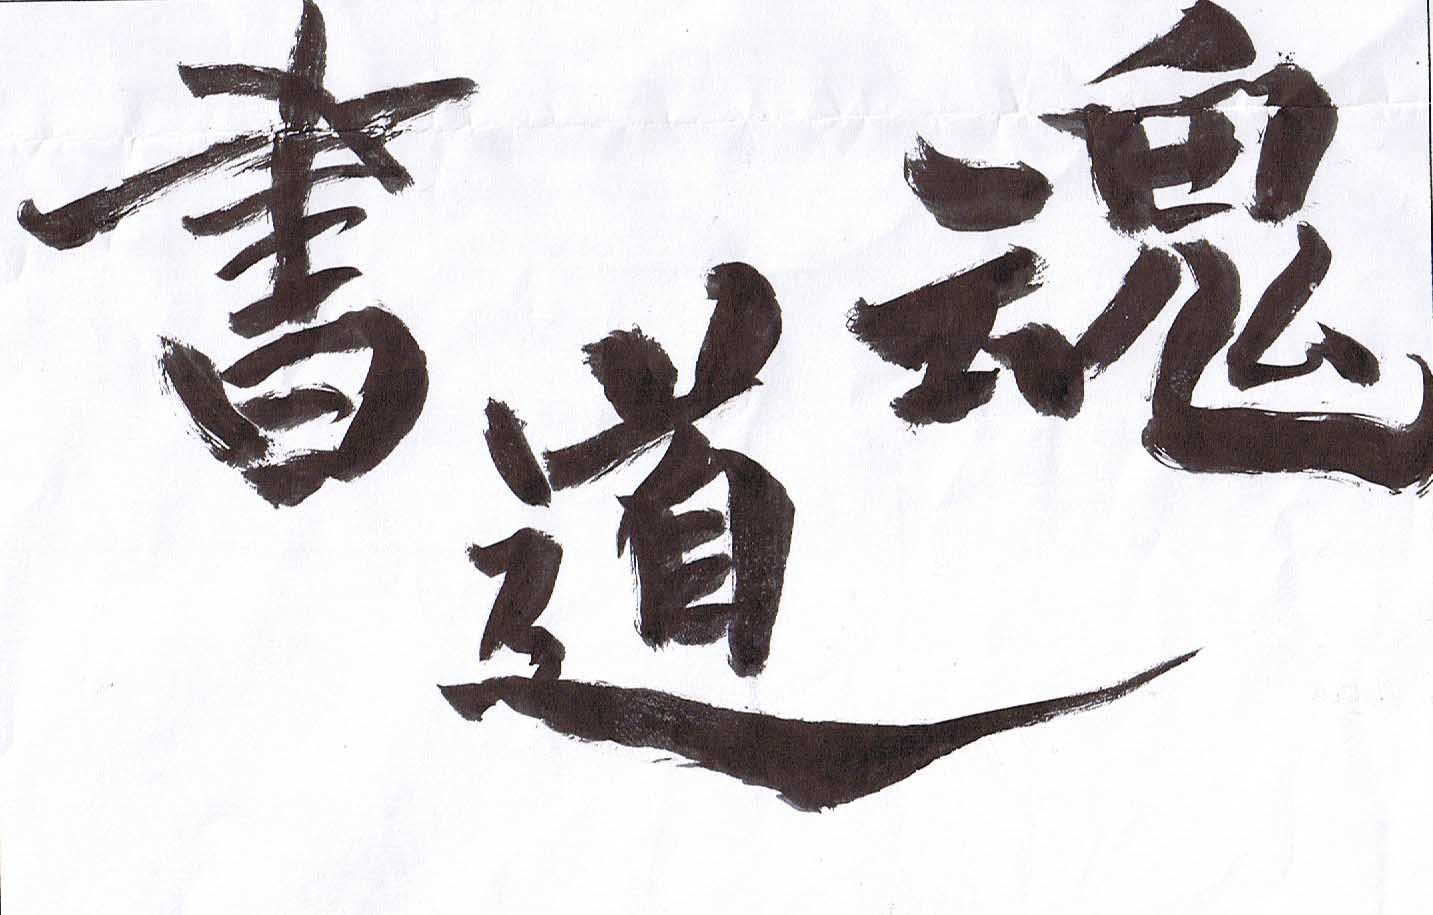 書道魂